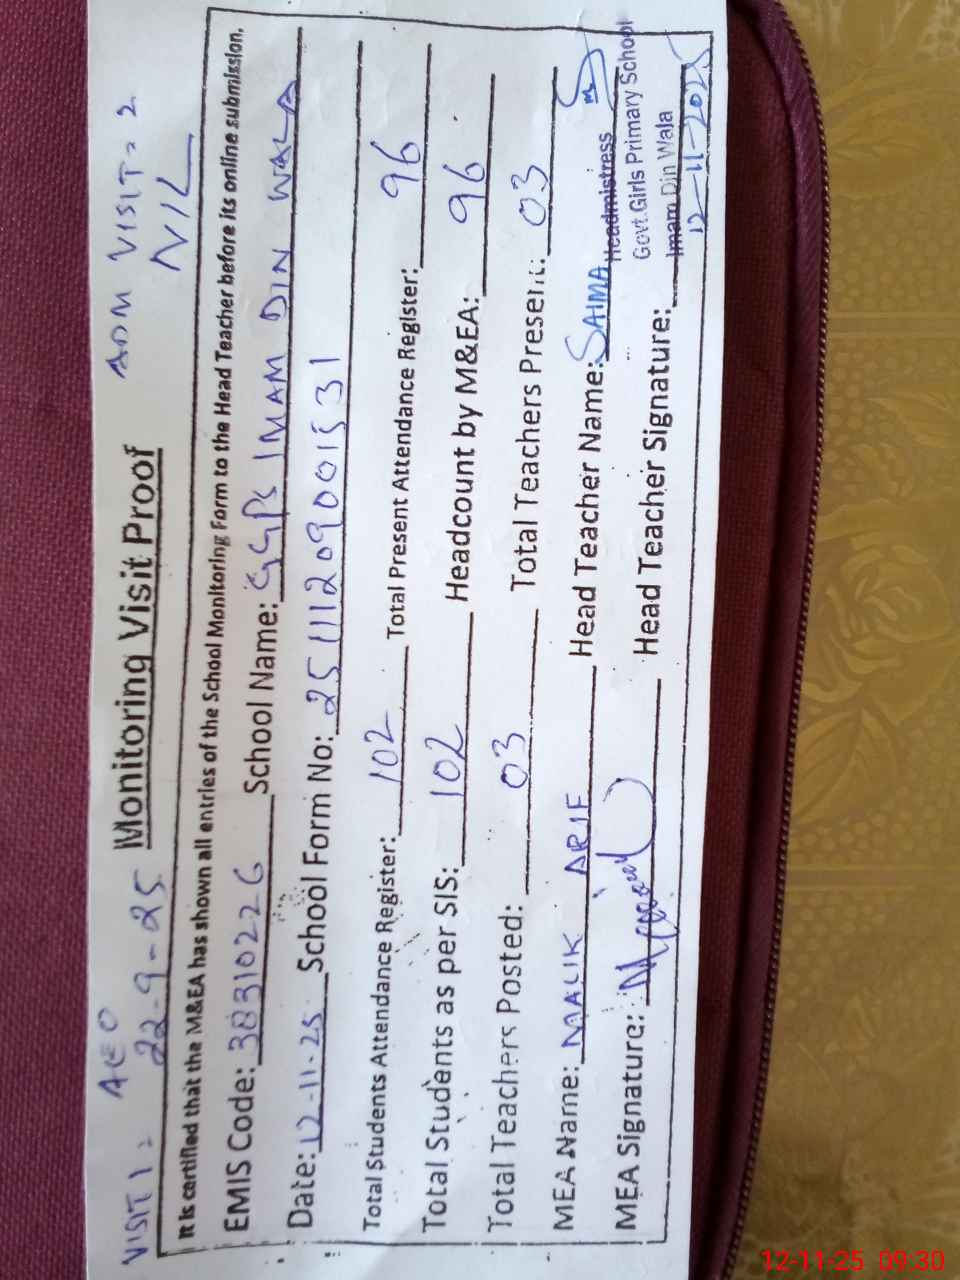 VISIT 1: AEO ADM VISIT-2
22-9-25 Monitoring Visit Proof NIL
It is certified that the M&EA has shown all entries of the School Monitoring Form to the Head Teacher before its online submission.
EMIS Code: 38310226 School Name: GGPS IMAM DIN WALA
Date: 12-11-25 School Form No: 25111209001531
Total Students Attendance Register: 102 Total Present Attendance Register: 96
Total Students as per SIS: 102 Headcount by M&EA: 96
Total Teachers Posted: 03 Total Teachers Present: 03
MEA Name: MALIK ARIF Head Teacher Name: SAIMA
Headmistress
Govt.Girls Primary School
Imam Din Wala
MEA Signature: Head Teacher Signature:
12-11-2025
12-11-25 09:30